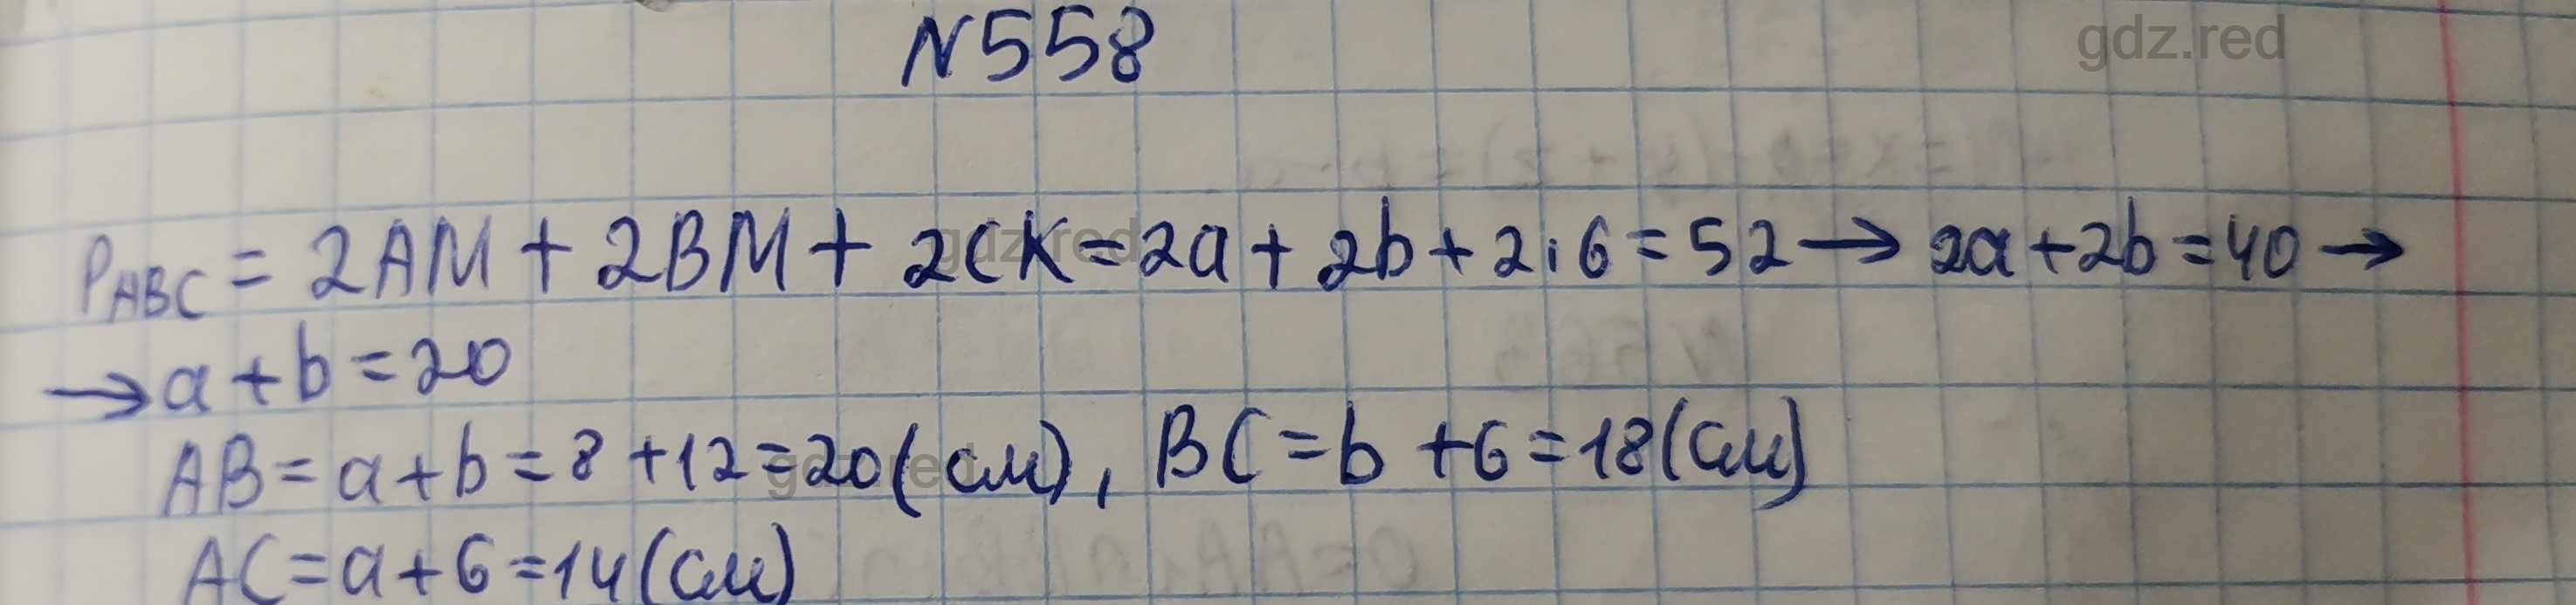 N558
gdz.red
P_ABC = 2AM + 2BM + 2CK = 2a + 2b + 2·6 = 52 → 2a + 2b = 40 →
gdz.red
→ a + b = 20
AB = a + b = 8 + 12 = 20 (см), BC = b + 6 = 18 (см)
gdz.red
AC = a + 6 = 14 (см)